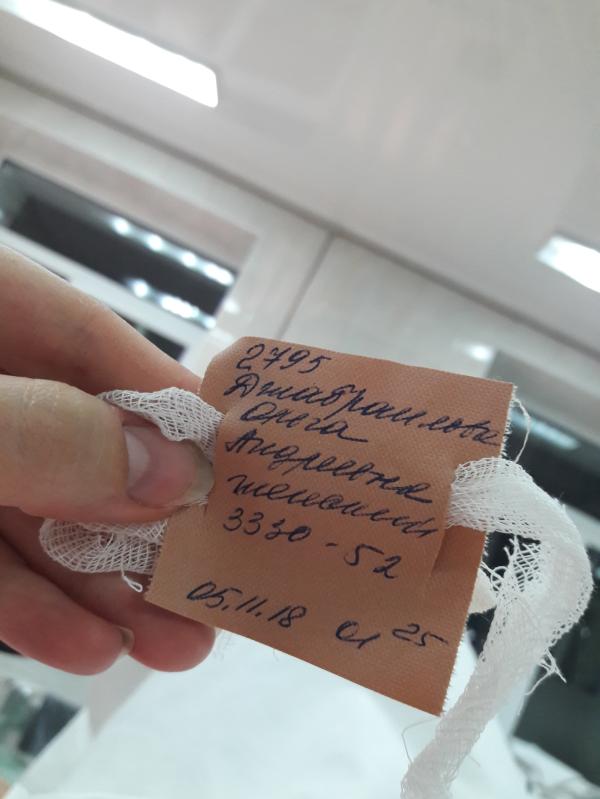 2795
Джабраилова
Ольга
Андреевна
женский
3330-52
05.11.18 01 25